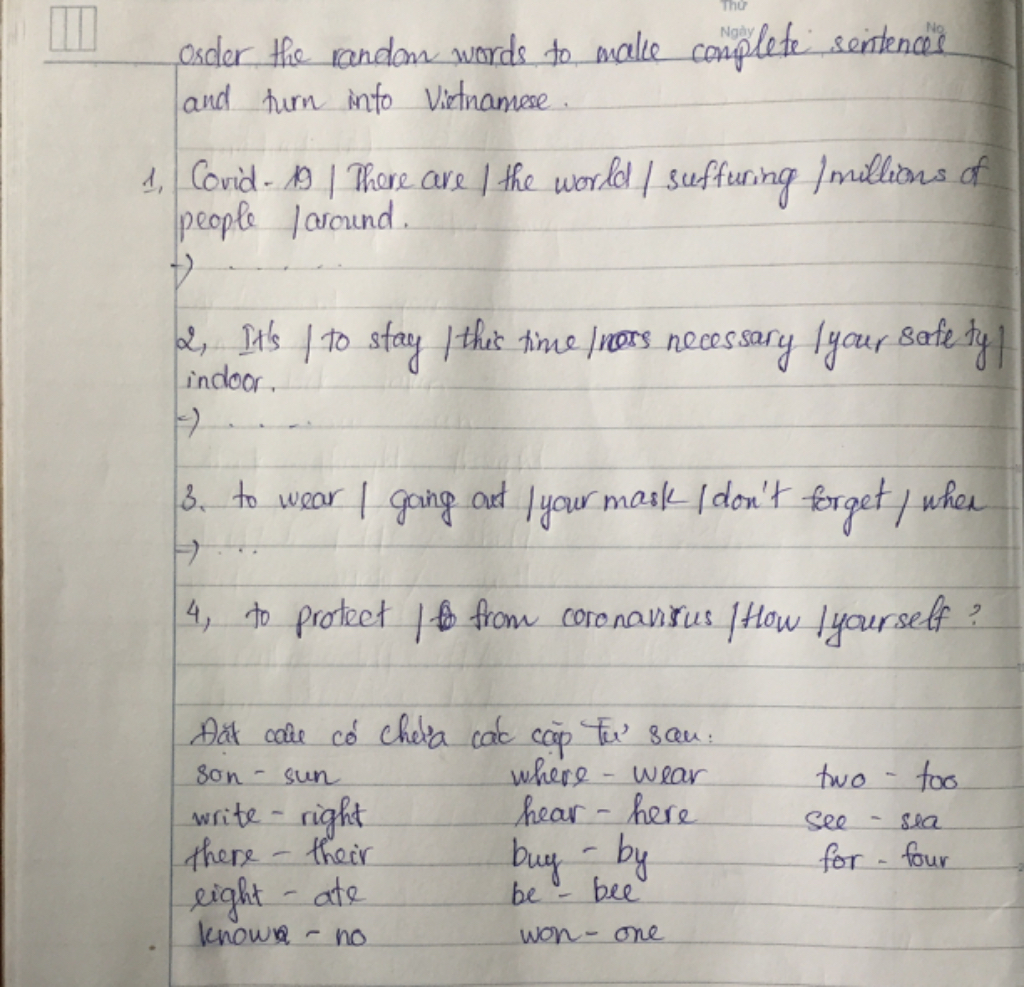 Thứ
Ngày No
order the random words to make complete sentences
and turn into Vietnamese.
1, Covid-19 / There are / the world / suffuring / millions of
people / around.
→ ..........
2, It's / to stay / this time / necessary / your safety /
indoor.
=> .....
3. to wear / going out / your mask / don't forget / when
=> ....
4, to protect / from coronavirus / How / yourself ?
Đặt câu có chứa các cặp từ sau:
son - sun where - wear two - too
write - right hear - here see - sea
there - their buy - by for - four
eight - ate be - bee
know - no won - one